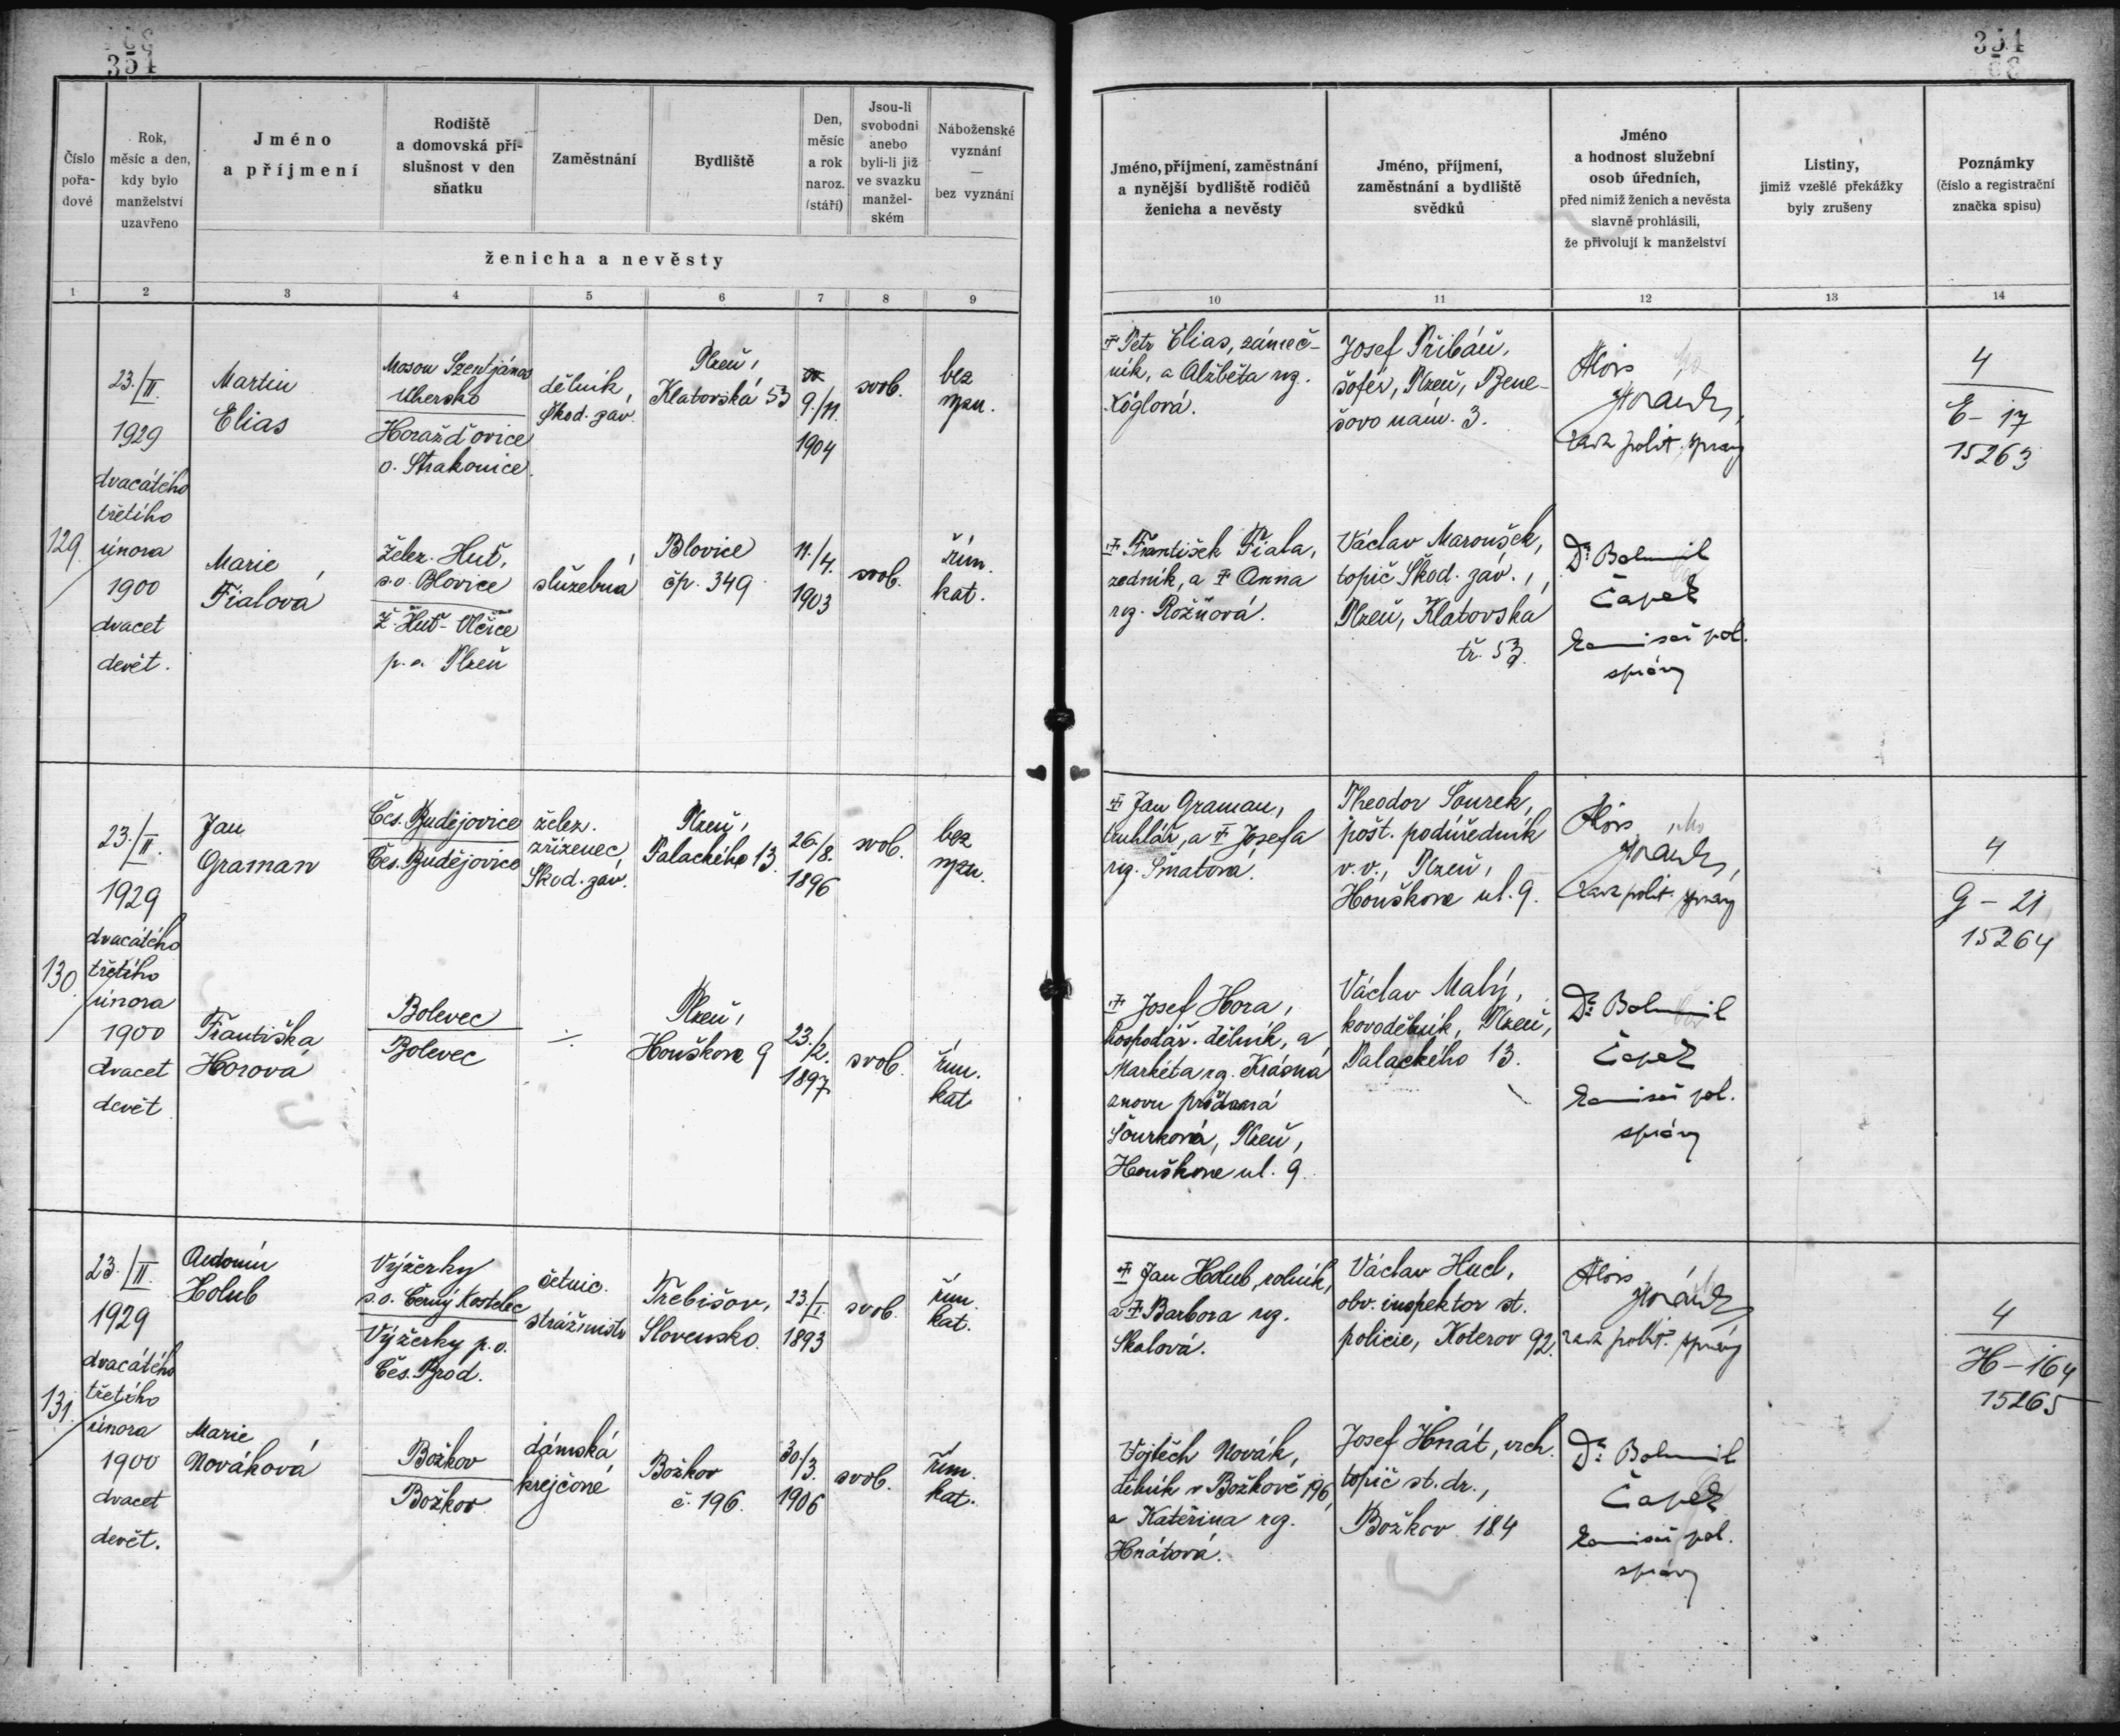 354
354
Číslo
pořa-
dové
Rok,
měsíc a den,
kdy bylo
manželství
uzavřeno
Jméno
a příjmení
Rodiště
a domovská pří-
slušnost v den
sňatku
Zaměstnání
Bydliště
Den,
měsíc
a rok
naroz.
(stáří)
Jsou-li
svobodni
anebo
byli-li již
ve svazku
manžel-
ském
Náboženské
vyznání
—
bez vyznání
ženicha a nevěsty
Jméno, příjmení, zaměstnání
a nynější bydliště rodičů
ženicha a nevěsty
Jméno, příjmení,
zaměstnání a bydliště
svědků
Jméno
a hodnost služební
osob úředních,
před nimiž ženich a nevěsta
slavně prohlásili,
že přivolují k manželství
Listiny,
jimiž vzešlé překážky
byly zrušeny
Poznámky
(číslo a registrační
značka spisu)
1 2 3 4 5 6 7 8 9 10 11 12 13 14
129
23./II.
1929
dvacátého
třetího
února
1900
dvacet
devět.
Martin
Elias
Moson Szentjános
Uhersko
Horažďovice
o. Strakonice.
dělník,
Škod. záv.
Plzeň,
Klatovská 53
9./11.
1904
svob.
bez
vyzn.
Ŧ Petr Elias, zámeč-
ník, a Alžběta roz.
Köglová.
Josef Přibáň,
šofér, Plzeň, Bene-
šovo nám. 3.
Alois
Horák,
rada polit. správy
4
E - 17
15263
Marie
Fialová
Želez. Huť,
s.o. Blovice
Ž. Huť - Vlčice
p.o. Plzeň
služebná
Blovice
čp. 349
11./4.
1903
svob.
řím.
kat.
Ŧ František Fiala,
zedník, a Ŧ Anna
roz. Rožňová.
Václav Maroušek,
topič Škod. záv.,
Plzeň, Klatovská
tř. 53.
Dr. Bohumil
Čapek
komisař pol.
správy
130
23./II.
1929
dvacátého
třetího
února
1900
dvacet
devět
Jan
Graman
Čes. Budějovice
Čes. Budějovice
želez.
zřízenec
Škod. záv.
Plzeň,
Palackého 13.
26./8.
1896
svob.
bez
vyzn.
Ŧ Jan Graman,
truhlář, a Ŧ Josefa
roz. Šmatová.
Theodor Sourek,
pošt. podúředník
v.v., Plzeň,
Houškova ul. 9.
Alois
Horák,
rada polit. správy
4
G - 21
15264
Františka
Horová
Bolevec
Bolevec
÷
Plzeň,
Houškova 9
23./2.
1897
svob.
řím.
kat
Ŧ Josef Hora,
hospodář. dělník, a
Markéta roz. Krásná
znovu provdaná
Sourková, Plzeň,
Houškova ul. 9.
Václav Malý,
kovodělník, Plzeň,
Palackého 13.
Dr. Bohumil
Čapek
komisař pol.
správy
131
23./II.
1929
dvacátého
třetího
února
1900
dvacet
devět.
Antonín
Holub
Výžerky
s.o. Černý Kostelec
Výžerky p.o.
Čes. Brod.
četnic.
strážmistr
Trebišov,
Slovensko.
23./I.
1893
svob.
řím.
kat.
Ŧ Jan Holub, rolník,
a Ŧ Barbora roz.
Skalová.
Václav Hucl,
obv. inspektor st.
policie, Koterov 92.
Alois
Horák,
rada polit. správy
4
H - 164
15265
Marie
Nováková
Božkov
Božkov
dámská
krejčová
Božkov
č. 196.
30./3.
1906
svob.
řím.
kat.
Vojtěch Novák,
dělník v Božkově 196,
a Kateřina roz.
Hnátová.
Josef Hnát, vrch.
topič st. dr.,
Božkov 184
Dr. Bohumil
Čapek
komisař pol.
správy